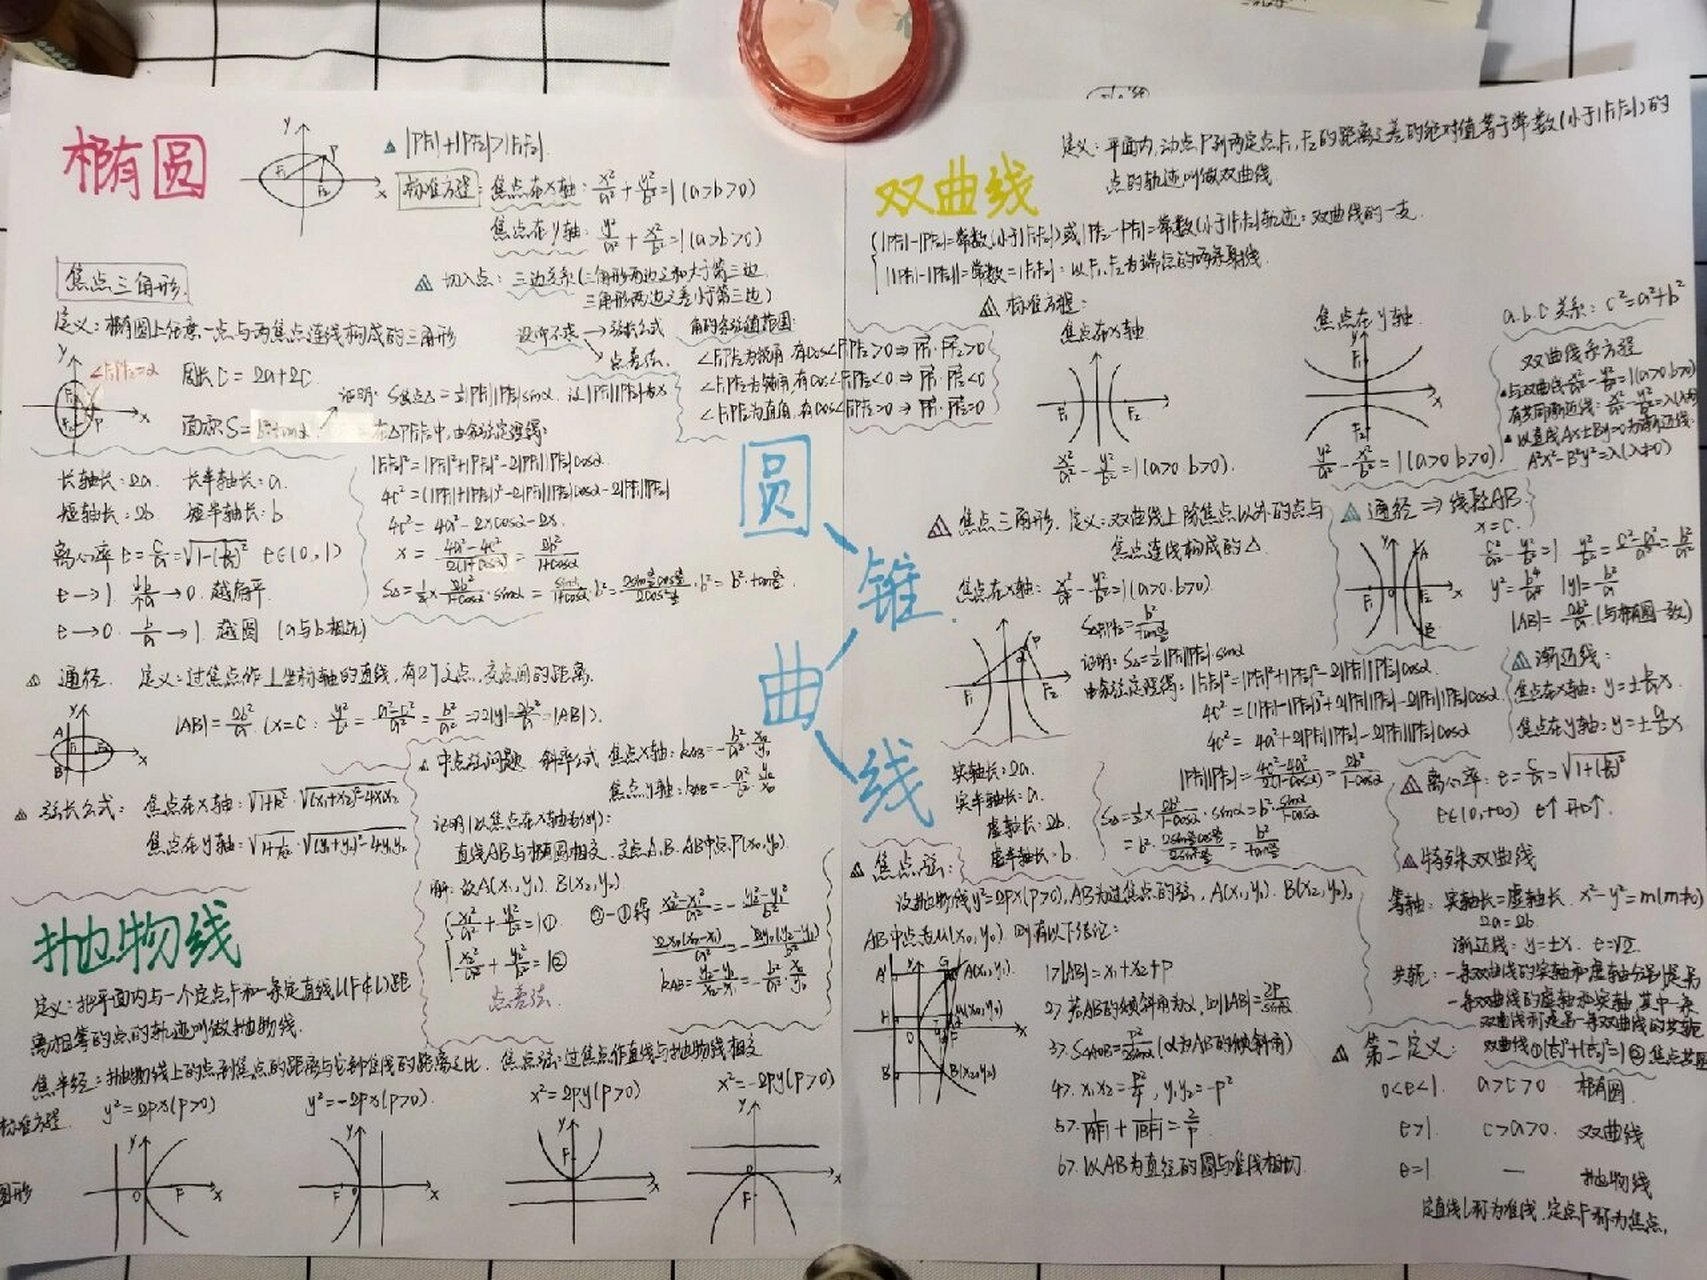 椭圆
|PF₁|+|PF₂|>|F₁F₂|.
标准方程：焦点在x轴：x²/a²+y²/b²=1(a>b>0)
焦点在y轴：y²/a²+x²/b²=1(a>b>0)
切入点：三边关系(三角形两边之和大于第三边
三角形两边之差小于第三边)
焦点三角形.
定义：椭圆上任意一点与两焦点连线构成的三角形
∠F₁PF₂=α
周长C=2a+2c.
面积S=b²tan
设而不求→弦长公式
点差法.
角的余弦值范围：
∠F₁PF₂为锐角,有cos∠F₁PF₂>0⇒PF₁·PF₂>0
∠F₁PF₂为钝角,有cos∠F₁PF₂<0⇒PF₁·PF₂<0
∠F₁PF₂为直角,有cos∠F₁PF₂=0⇒PF₁·PF₂=0
证明：S焦点△=½|PF₁||PF₂|sinα.设|PF₁||PF₂|为x
在△PF₁F₂中,由余弦定理得：
|F₁F₂|²=|PF₁|²+|PF₂|²-2|PF₁||PF₂|cosα
4c²=(|PF₁|+|PF₂|)²-2|PF₁||PF₂|cosα-2|PF₁||PF₂|
4c²=4a²-2xcosα-2x.
x=(4a²-4c²)/2(1+cosα)=2b²/(1+cosα)
S△=½×2b²/(1+cosα)·sinα=sinα/(1+cosα)·b²=2sin(α/2)cos(α/2)/2cos²(α/2)·b²=b²·tan(α/2).
长轴长：2a. 长半轴长：a.
短轴长：2b 短半轴长：b
离心率e=c/a=√(1-(b/a)²) e∈(0,1)
e→1 b/a→0.越扁平
e→0. b/a→1.越圆 (a与b相近)
通径. 定义：过焦点作⊥坐标轴的直线,有2个交点,交点间的距离.
|AB|=2b²/a (x=c: y²/b²=(a²-c²)/a²=b²/a²⇒2|y|=2b²/a=|AB|).
弦长公式：焦点在x轴：√(1+k²)·√((x₁+x₂)²-4x₁x₂)
焦点在y轴：√(1+1/k²)·√((y₁+y₂)²-4y₁y₂)
中点弦问题 斜率公式 焦点x轴：kAB=-b²/a²·x₀/y₀
焦点y轴：kAB=-a²/b²·x₀/y₀
证明(以焦点在x轴为例)：
直线AB与椭圆相交,交点A.B.AB中点P(x₀,y₀).
解：设A(x₁,y₁).B(x₂,y₂)
x₁²/a²+y₁²/b²=1①
x₂²/a²+y₂²/b²=1②
②-①得 (x₂²-x₁²)/a²=-(y₂²-y₁²)/b²
2x₀(x₂-x₁)/a²=-2y₀(y₂-y₁)/b²
kAB=(y₂-y₁)/(x₂-x₁)=-b²/a²·x₀/y₀
点差法.
抛物线
定义：把平面内与一个定点F和一条定直线l(F∉l)距
离相等的点的轨迹叫做抛物线.
焦半径：抛物线上的点到焦点的距离与它到准线的距离之比. 焦点弦：过焦点作直线与抛物线相交
标准方程. y²=2px(p>0) y²=-2px(p>0). x²=2py(p>0) x²=-2py(p>0)
图形
圆
锥
曲
线
双曲线
定义：平面内,动点P到两定点F₁,F₂的距离之差的绝对值等于常数(小于|F₁F₂|)的
点的轨迹叫做双曲线.
|PF₁|-|PF₂|=常数(小于|F₁F₂|)或|PF₂|-|PF₁|=常数(小于|F₁F₂|)轨迹：双曲线的一支.
||PF₁|-|PF₂||=常数=|F₁F₂|：以F₁,F₂为端点的两条射线.
标准方程：
焦点在x轴
x²/a²-y²/b²=1(a>0 b>0).
焦点在y轴
y²/a²-x²/b²=1(a>0 b>0)
a.b.c关系：c²=a²+b²
双曲线系方程
与双曲线x²/a²-y²/b²=1(a>0 b>0)
有共同渐近线：x²/a²-y²/b²=λ(λ≠0)
以直线Ax±By=0为渐近线：
A²x²-B²y²=λ(λ≠0)
焦点三角形.定义：双曲线上除焦点以外的点与
焦点连线构成的△.
焦点在x轴：x²/a²-y²/b²=1(a>0.b>0)
S△F₁PF₂=b²/tan(α/2)
证明：S△=½|PF₁||PF₂|·sinα
由余弦定理得：|F₁F₂|²=|PF₁|²+|PF₂|²-2|PF₁||PF₂|cosα.
4c²=(|PF₁|-|PF₂|)²+2|PF₁||PF₂|-2|PF₁||PF₂|cosα
4c²=4a²+2|PF₁||PF₂|-2|PF₁||PF₂|cosα
|PF₁||PF₂|=(4c²-4a²)/2(1-cosα)=2b²/(1-cosα)
S△=½×2b²/(1-cosα)·sinα=b²·sinα/(1-cosα)
=b²·2sin(α/2)cos(α/2)/2sin²(α/2)=b²/tan(α/2)
实轴长：2a.
实半轴长：a.
虚轴长：2b.
虚半轴长：b.
通径⇒线段AB.
x=c.
c²/a²-y²/b²=1 y²/b²=(c²-a²)/a²=b²/a²
y²=b⁴/a² |y|=b²/a
|AB|=2b²/a(与椭圆一致)
渐近线：
焦点在x轴：y=±b/a x.
焦点在y轴：y=±a/b x.
离心率：e=c/a=√(1+(b/a)²)
e∈(0,+∞) e↑开口↑.
特殊双曲线
等轴：实轴长=虚轴长. x²-y²=m(m≠0)
2a=2b.
渐近线：y=±x. e=√2.
共轭：一条双曲线的实轴和虚轴分别是另
一条双曲线的虚轴和实轴,其中一条
双曲线称是另一条双曲线的共轭
双曲线①(1/e₁)²+(1/e₂)²=1②焦点共圆
焦点弦：
设抛物线y²=2px(p>0),AB为过焦点的弦,A(x₁,y₁).B(x₂,y₂),
AB中点为M(x₀,y₀).则有以下结论：
1>|AB|=x₁+x₂+p
2>若AB的倾斜角为α,则|AB|=2p/sin²α
3>.S△AOB=p²/2sinα(α为AB的倾斜角)
4>.x₁x₂=p²/4,y₁y₂=-p²
5>.1/|AF|+1/|BF|=2/p.
6>.以AB为直径的圆与准线相切.
第二定义：
0<e<1. a>c>0 椭圆
e>1. c>a>0. 双曲线
e=1 — 抛物线
定直线l称为准线,定点F称为焦点.